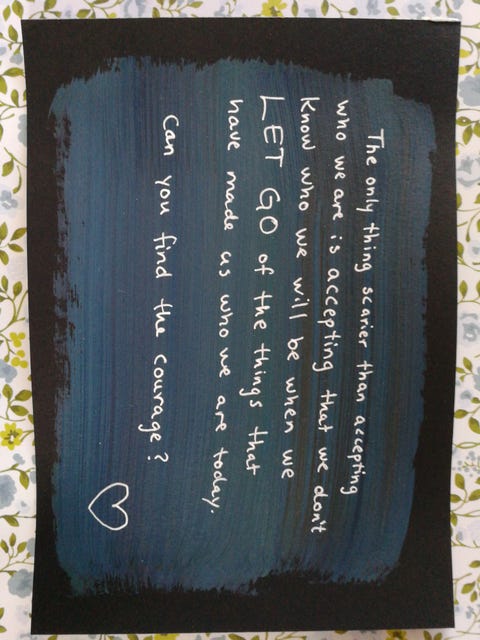 The only thing scarier than accepting
who we are is accepting that we don't
know who we will be when we
LET GO of the things that
have made us who we are today.
Can you find the courage?